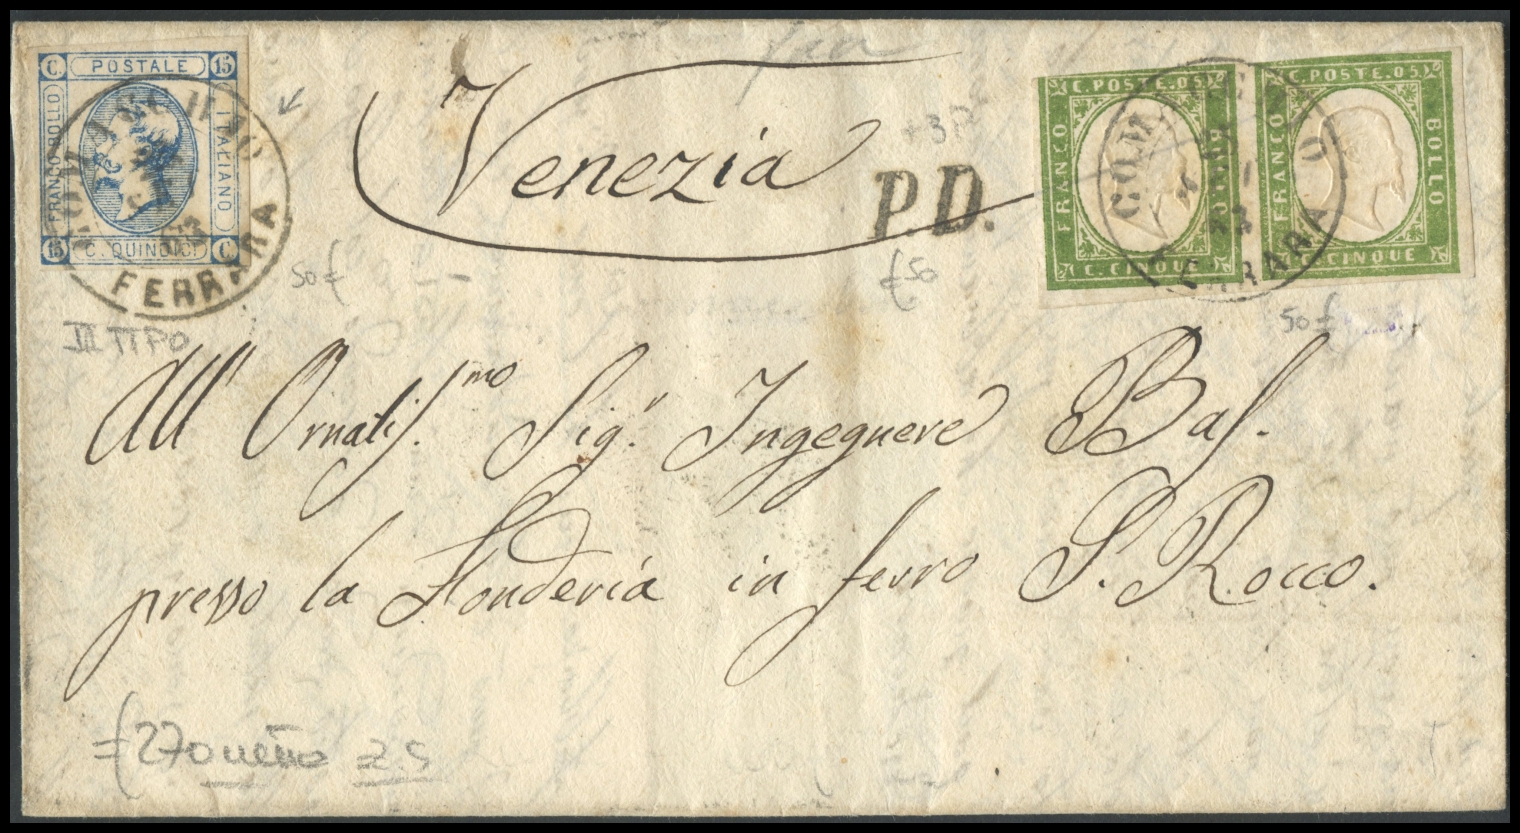 C POSTALE 15
FRANCO BOLLO
ITALIANO
15 C. QUINDICI C
COMACCHIO
FERRARA
Venezia
P.D.
+3P
C. POSTE. 05
FRANCO
BOLLO
C. CINQUE
C. POSTE. 05
FRANCO
BOLLO
CINQUE
COM
FERRARA
50£
£50
50£
III TIPO
All' Ornatis.mo Sig.r Ingegnere Bas.
presso la Fonderia in ferro S. Rocco.
270